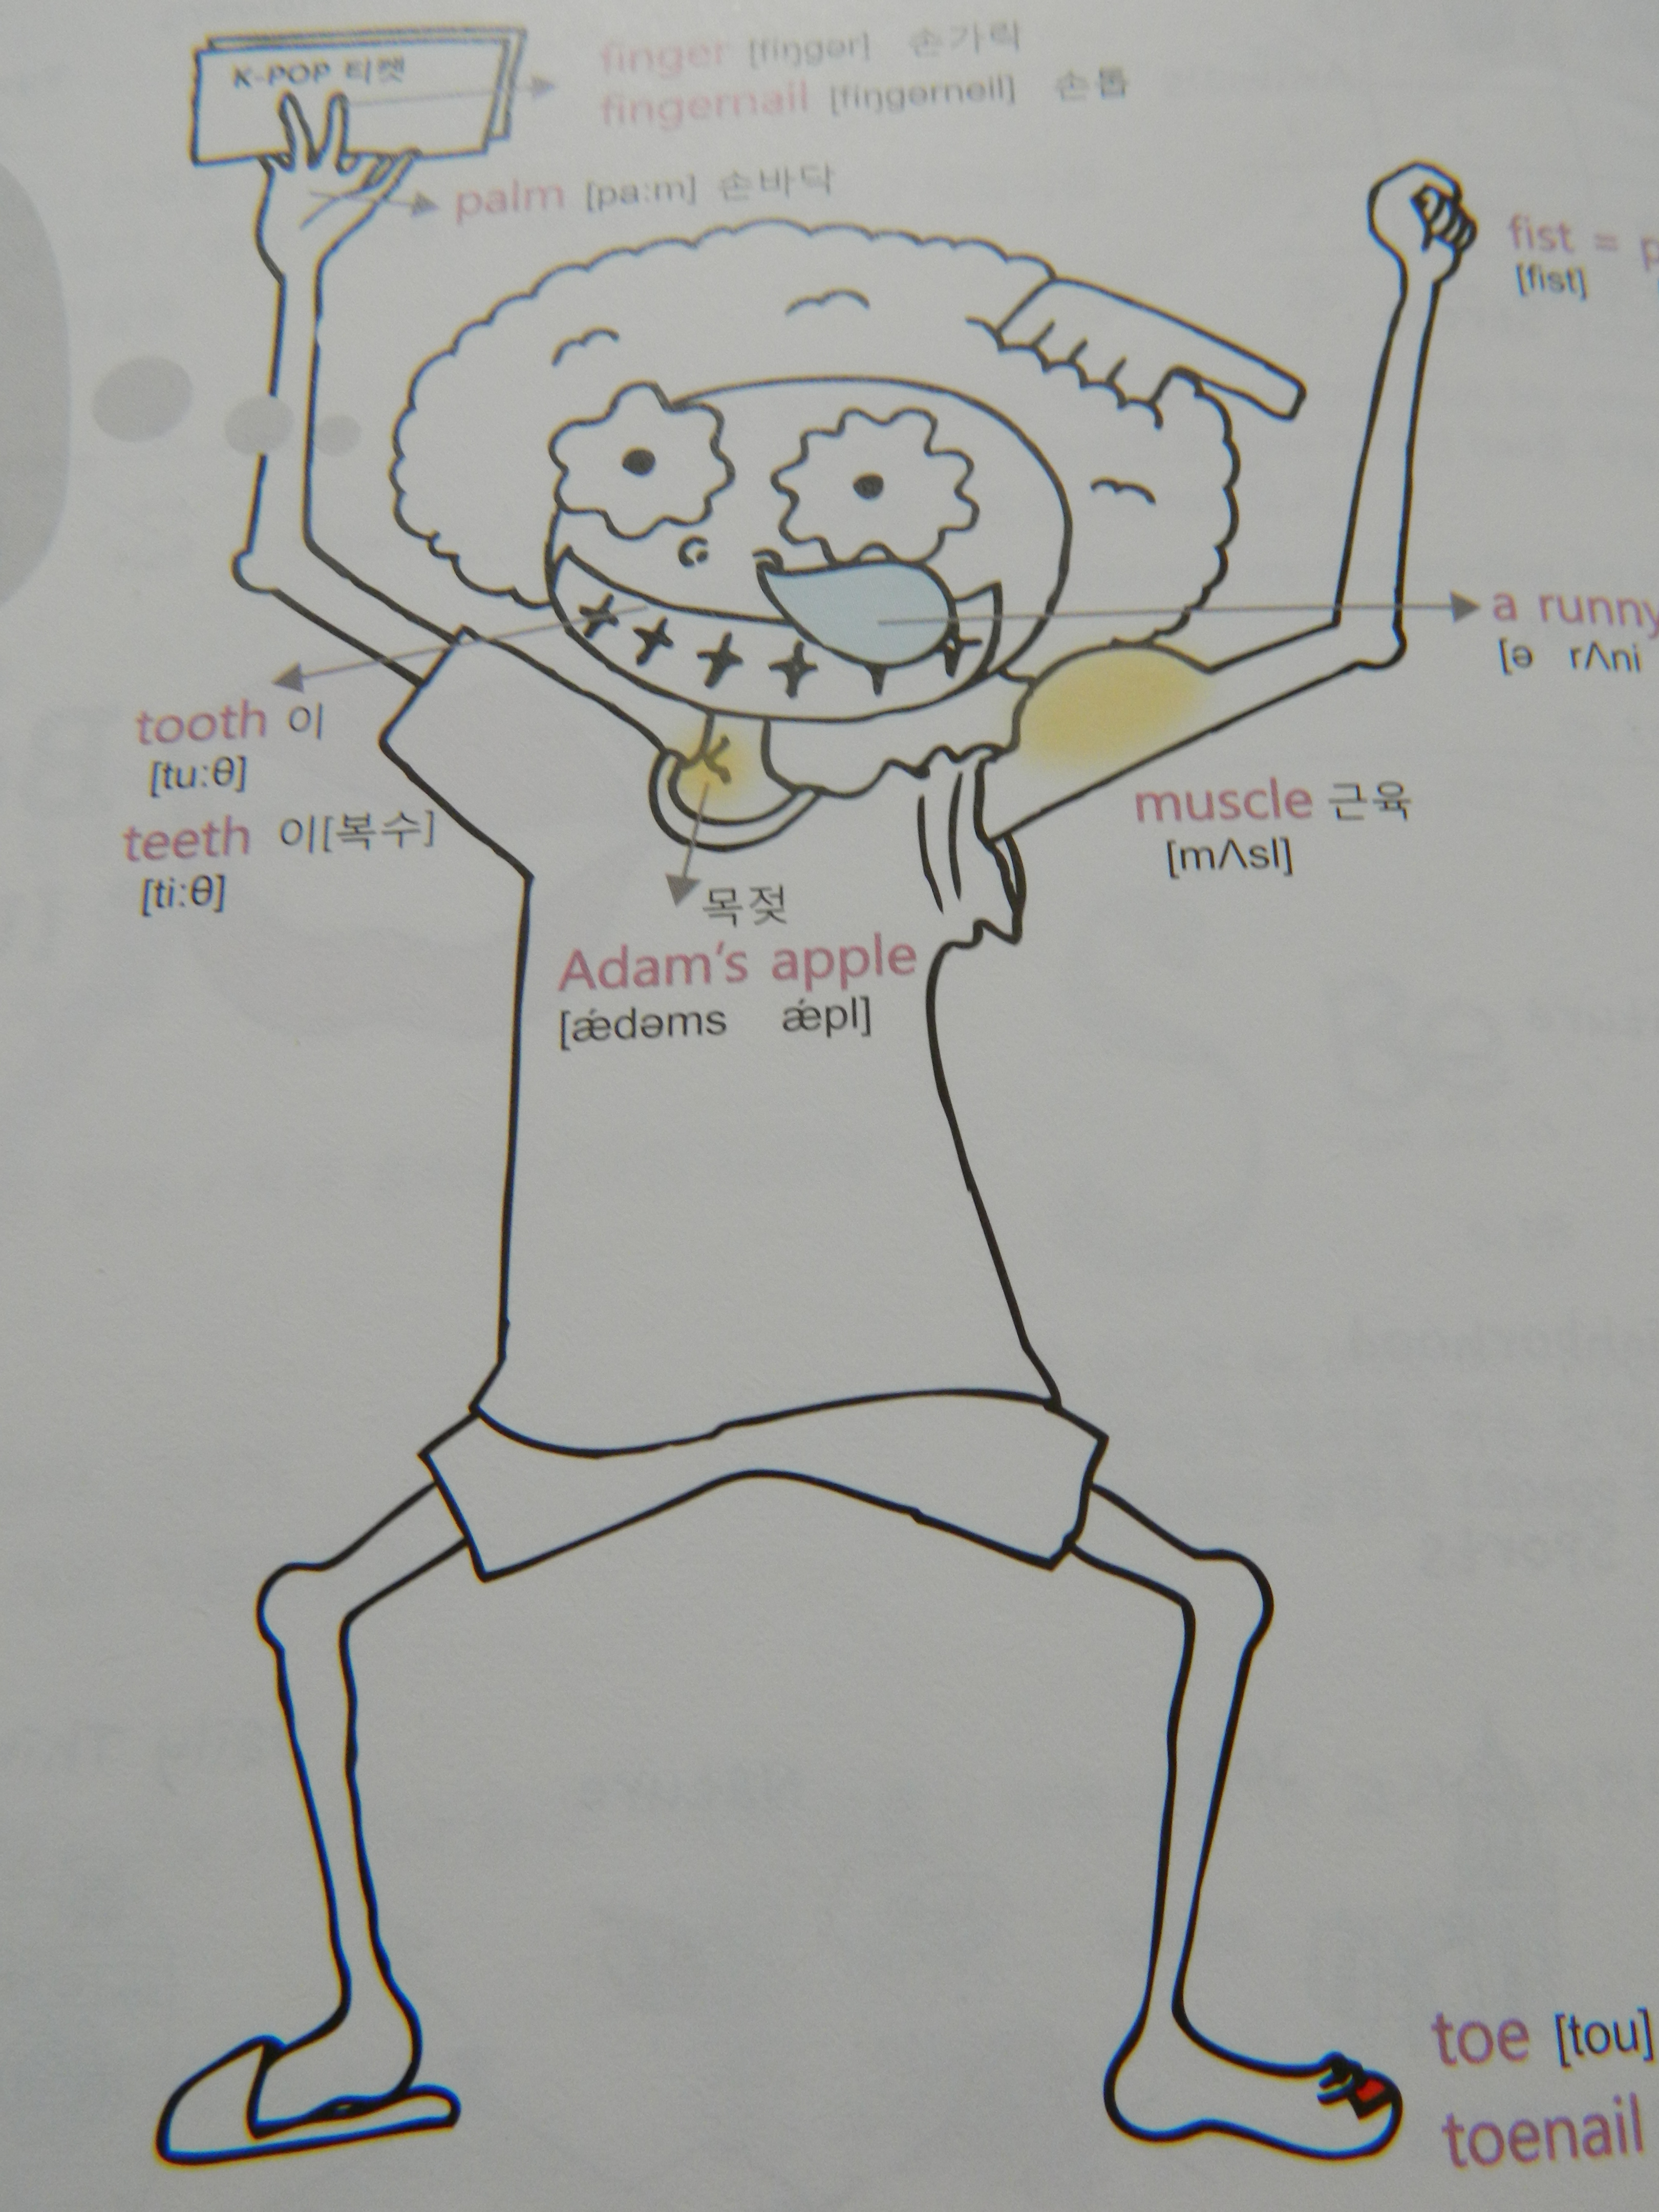 K-POP 티켓
finger [fiŋgər] 손가락
fingernail [fiŋgərneil] 손톱
palm [pa:m] 손바닥
fist =
[fist]
a runny
[ə rʌni
tooth 이
[tu:θ]
teeth 이[복수]
[ti:θ]
muscle 근육
[mʌsl]
목젖
Adam's apple
[ǽdəms ǽpl]
toe [tou]
toenail